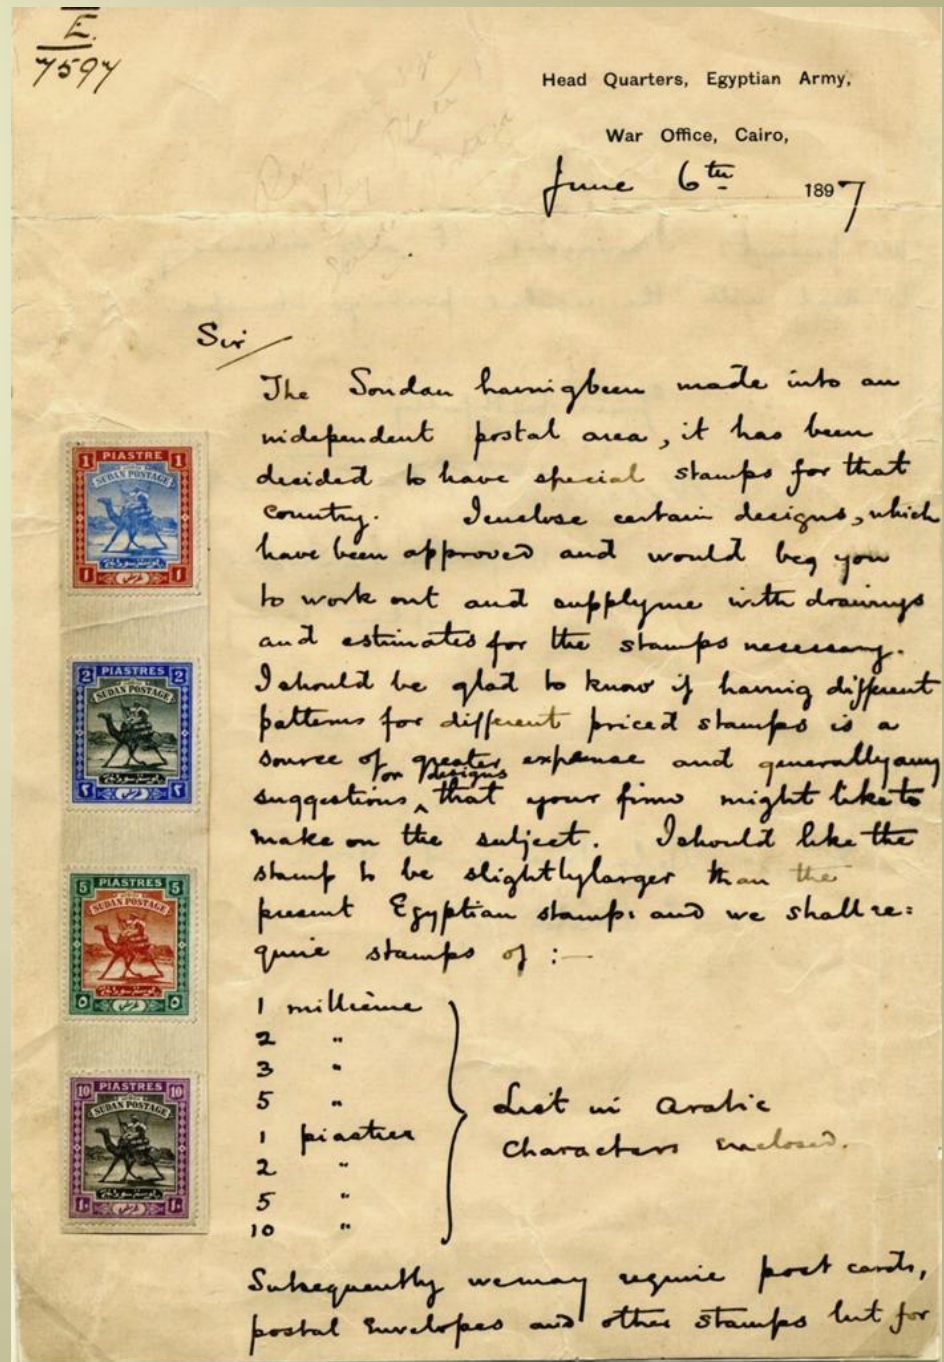 E.
7597
Head Quarters, Egyptian Army,
War Office, Cairo,
June 6th 1897
Sir
The Soudan having been made into an
independent postal area, it has been
decided to have special stamps for that
country. I enclose certain designs, which
have been approved and would beg you
to work out and supply me with drawings
and estimates for the stamps necessary.
I should be glad to know if having different
patterns for different priced stamps is a
source of greater expense and generally any
suggestions for designs that your firm might like to
make on the subject. I should like the
stamp to be slightly larger than the
present Egyptian stamps and we shall re=
quire stamps of :—
1 millième
2 "
3 "
5 "
1 piastre
2 "
5 "
10 "
List in Arabic
Characters enclosed.
Subsequently we may require post cards,
postal Envelopes and other stamps but for
1 PIASTRE 1
SUDAN POSTAGE
1 قرش 1
2 PIASTRES 2
SUDAN POSTAGE
٢ ٢
5 PIASTRES 5
SUDAN POSTAGE
٥ ٥
10 PIASTRES 10
SUDAN POSTAGE
١٠ ١٠